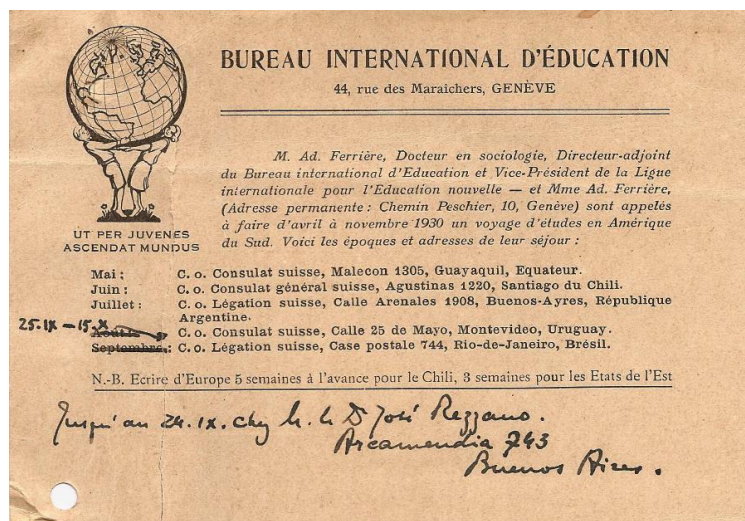 BUREAU INTERNATIONAL D'ÉDUCATION
44, rue des Maraîchers, GENÈVE
M. Ad. Ferrière, Docteur en sociologie, Directeur-adjoint
du Bureau international d'Education et Vice-Président de la Ligue
internationale pour l'Education nouvelle — et Mme Ad. Ferrière,
(Adresse permanente : Chemin Peschier, 10, Genève) sont appelés
à faire d'avril à novembre 1930 un voyage d'études en Amérique
du Sud. Voici les époques et adresses de leur séjour :
UT PER JUVENES
ASCENDAT MUNDUS
Mai : C. o. Consulat suisse, Malecon 1305, Guayaquil, Equateur.
Juin : C. o. Consulat général suisse, Agustinas 1220, Santiago du Chili.
Juillet : C. o. Légation suisse, Calle Arenales 1908, Buenos-Ayres, République
Argentine.
25.IX — 15.X
Août : C. o. Consulat suisse, Calle 25 de Mayo, Montevideo, Uruguay.
Septembre : C. o. Légation suisse, Case postale 744, Rio-de-Janeiro, Brésil.
N.-B. Ecrire d'Europe 5 semaines à l'avance pour le Chili, 3 semaines pour les Etats de l'Est
Jusqu'au 24.IX. chez M. le Dr José Rezzano.
Arcamendia 743
Buenos Aires.